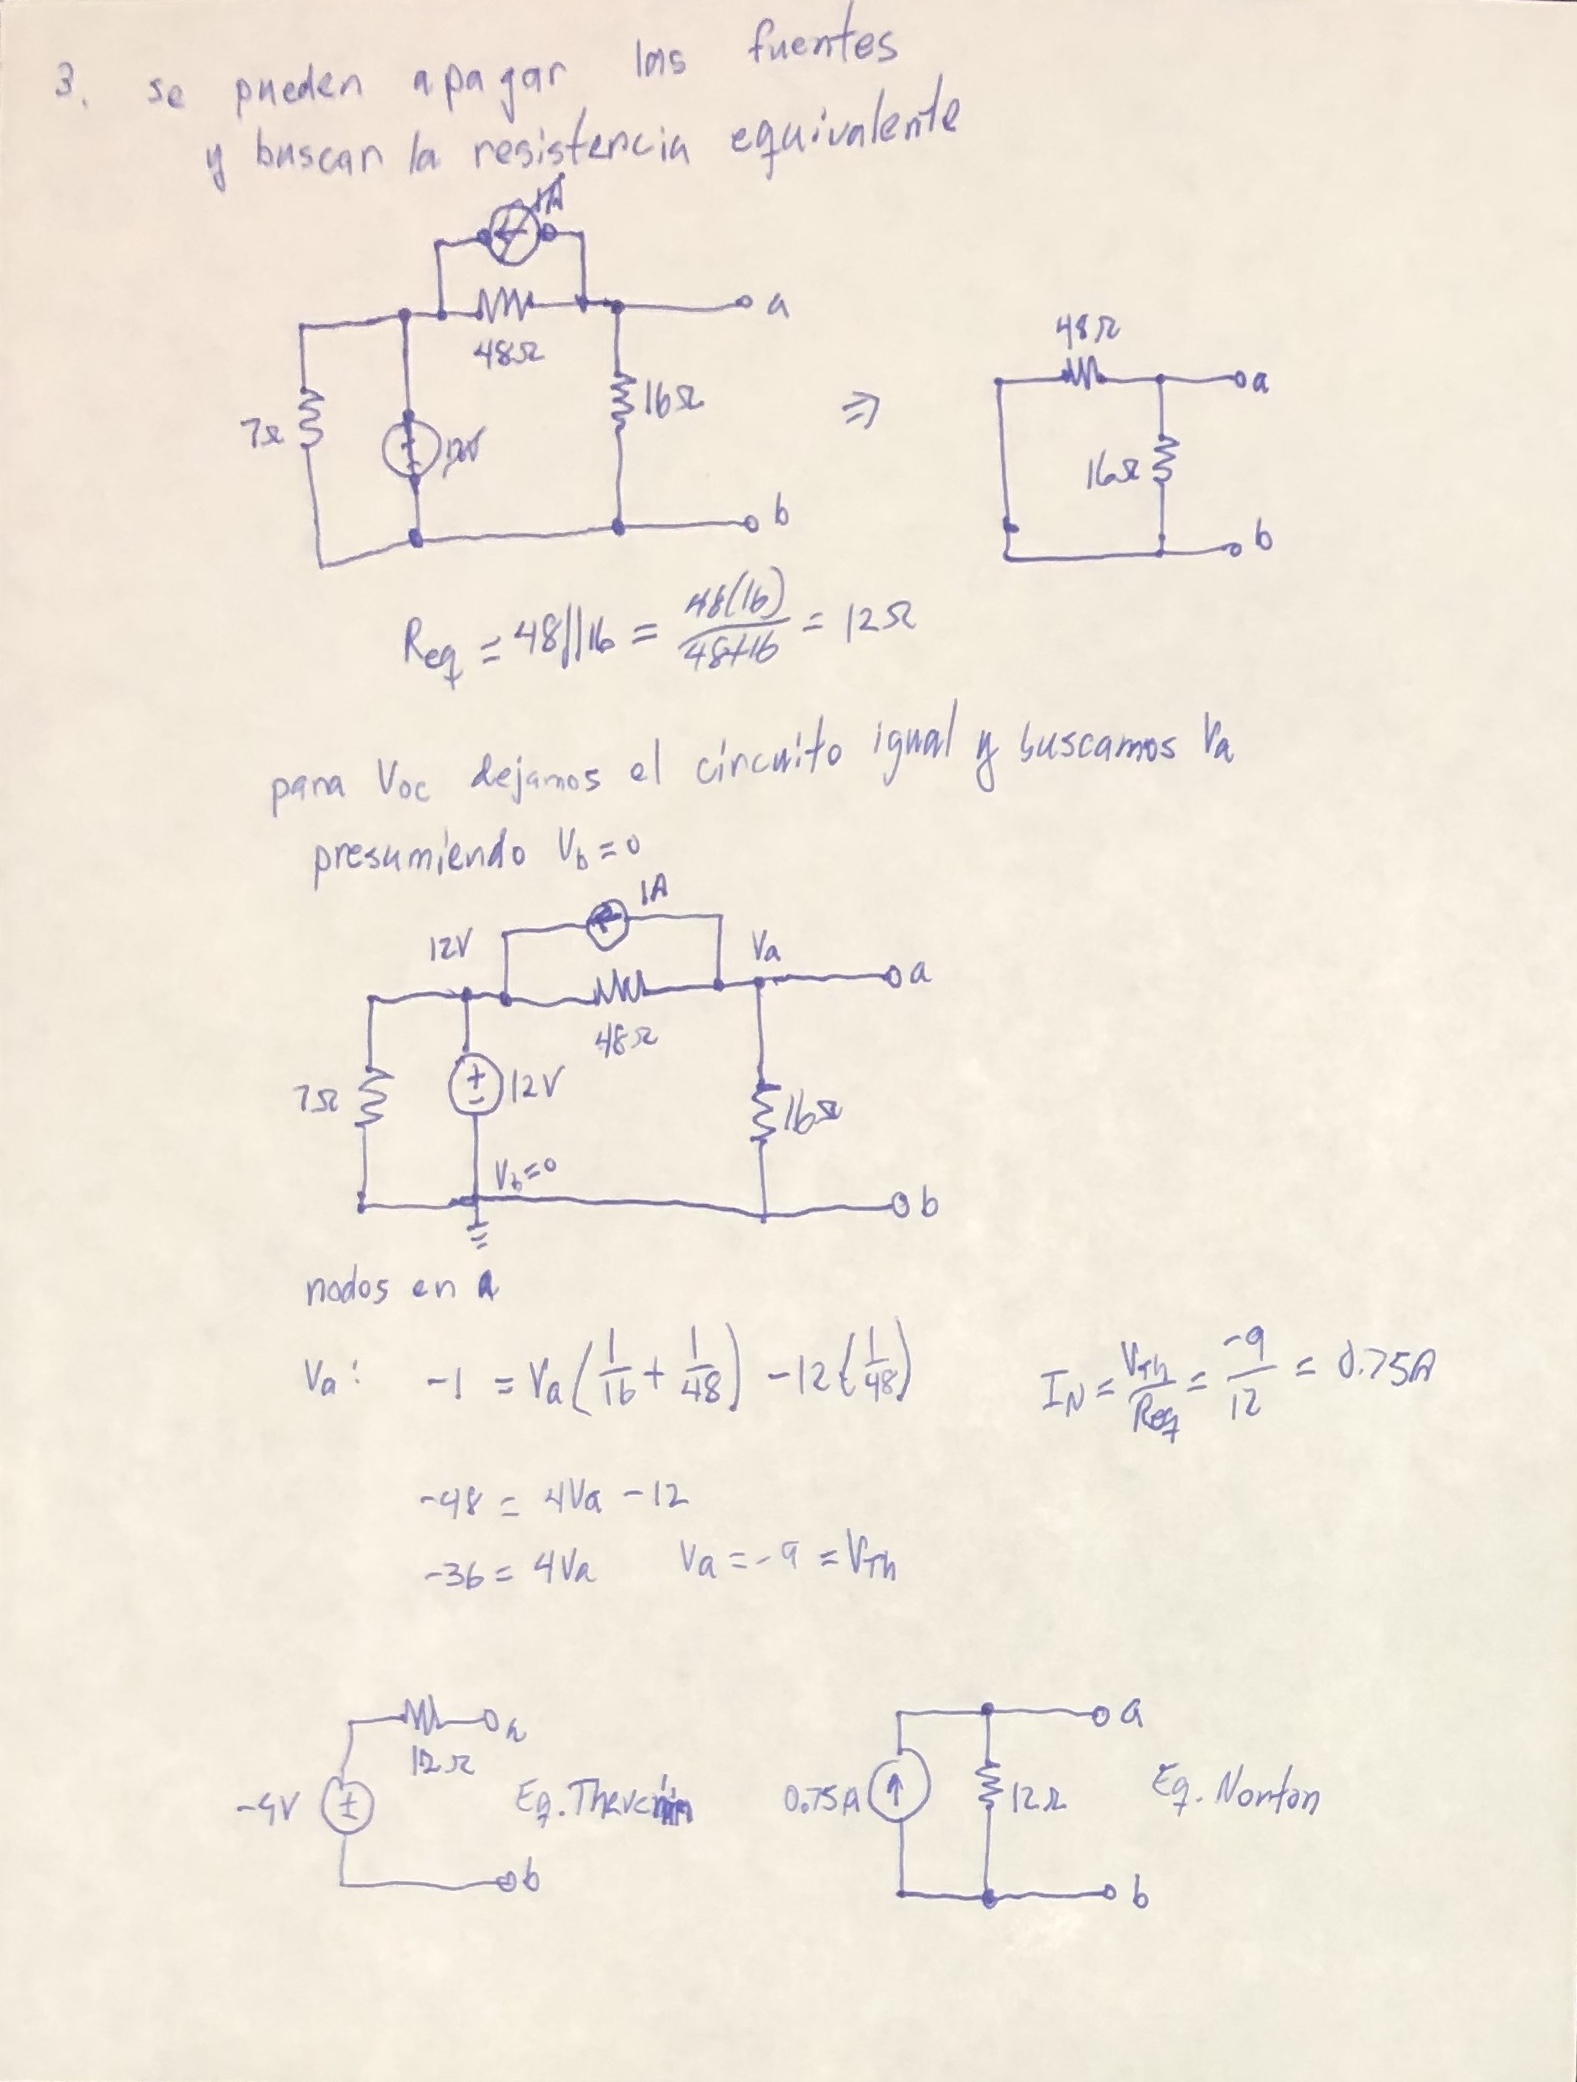 3. se pueden apagar las fuentes
y buscar la resistencia equivalente
1A
48Ω
a
7Ω
12V
16Ω
b
⇒
48Ω
a
16Ω
b
Req = 48||16 = 48(16)/48+16 = 12Ω
para Voc dejamos el circuito igual y buscamos Va
presumiendo Vb = 0
1A
12V
Va
a
48Ω
7Ω
+
-
12V
16Ω
Vb = 0
b
nodos en a
Va: -1 = Va(1/16 + 1/48) - 12(1/48)
IN = VTh/Req = -9/12 = 0.75A
-48 = 4Va - 12
-36 = 4Va Va = -9 = VTh
a
12Ω
-9V
+
-
Eq. Thevenin
b
a
0.75A
12Ω
Eq. Norton
b